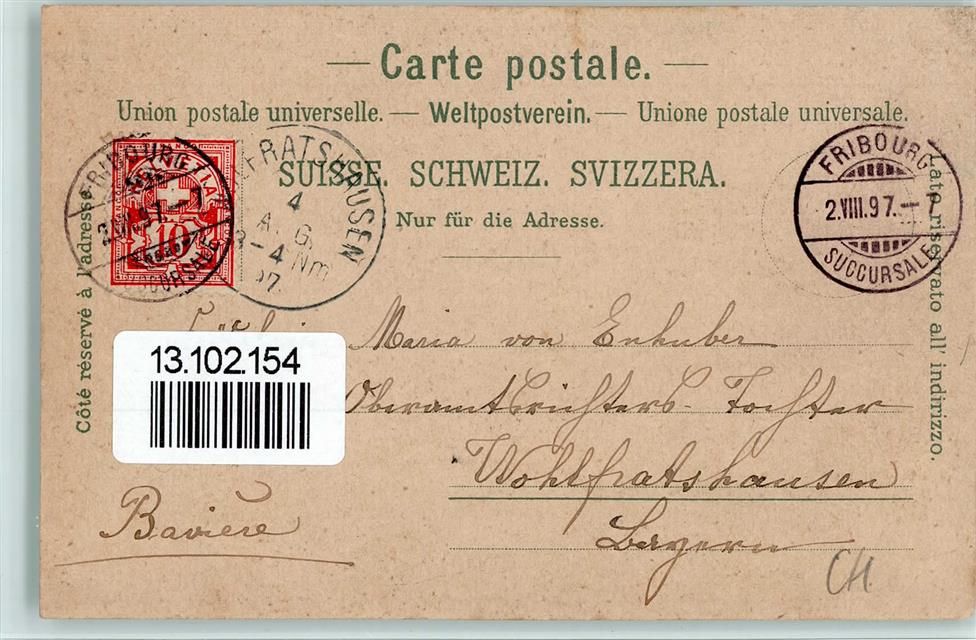 — Carte postale. —
Union postale universelle. — Weltpostverein. — Unione postale universale.
SUISSE. SCHWEIZ. SVIZZERA.
Nur für die Adresse.
Côté réservé à l'adresse.
Lato riservato all' indirizzo.
10
FRATSHAUSEN
4
AUG.
3-4 Nm
97.
FRIBOURG
2.VIII.97.-
SUCCURSALE
13.102.154
Maria von Enhuber
Oberamtsrichters-Tochter
Wohlfratshausen
Bayern
Bavière
CH